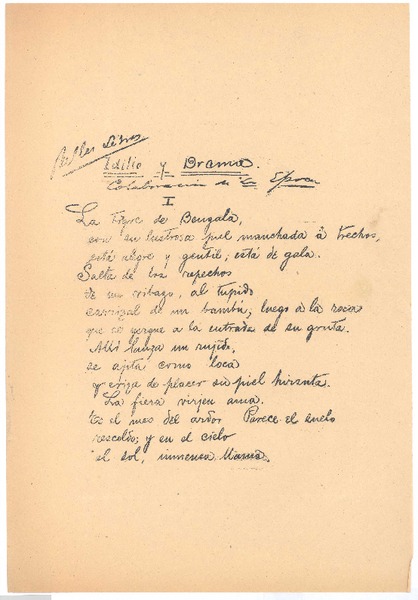 Bellas Letras
Idilio y Drama.
Colaboración de "La Epoca
I
La tigre de Bengala,
con su lustrosa piel manchada á trechos,
está alegre y gentil, está de gala.
Salta de los repechos
de un ribazo, al tupido
carrizal de un bambú, luego a la roca
que se yergue a la entrada de su gruta.
Allí lanza un rujido,
se ajita como loca
y eriza de placer su piel hirsuta.
La fiera virjen ama.
Es el mes del ardor. Parece el suelo
rescoldo; y en el cielo
el sol, inmensa llama.